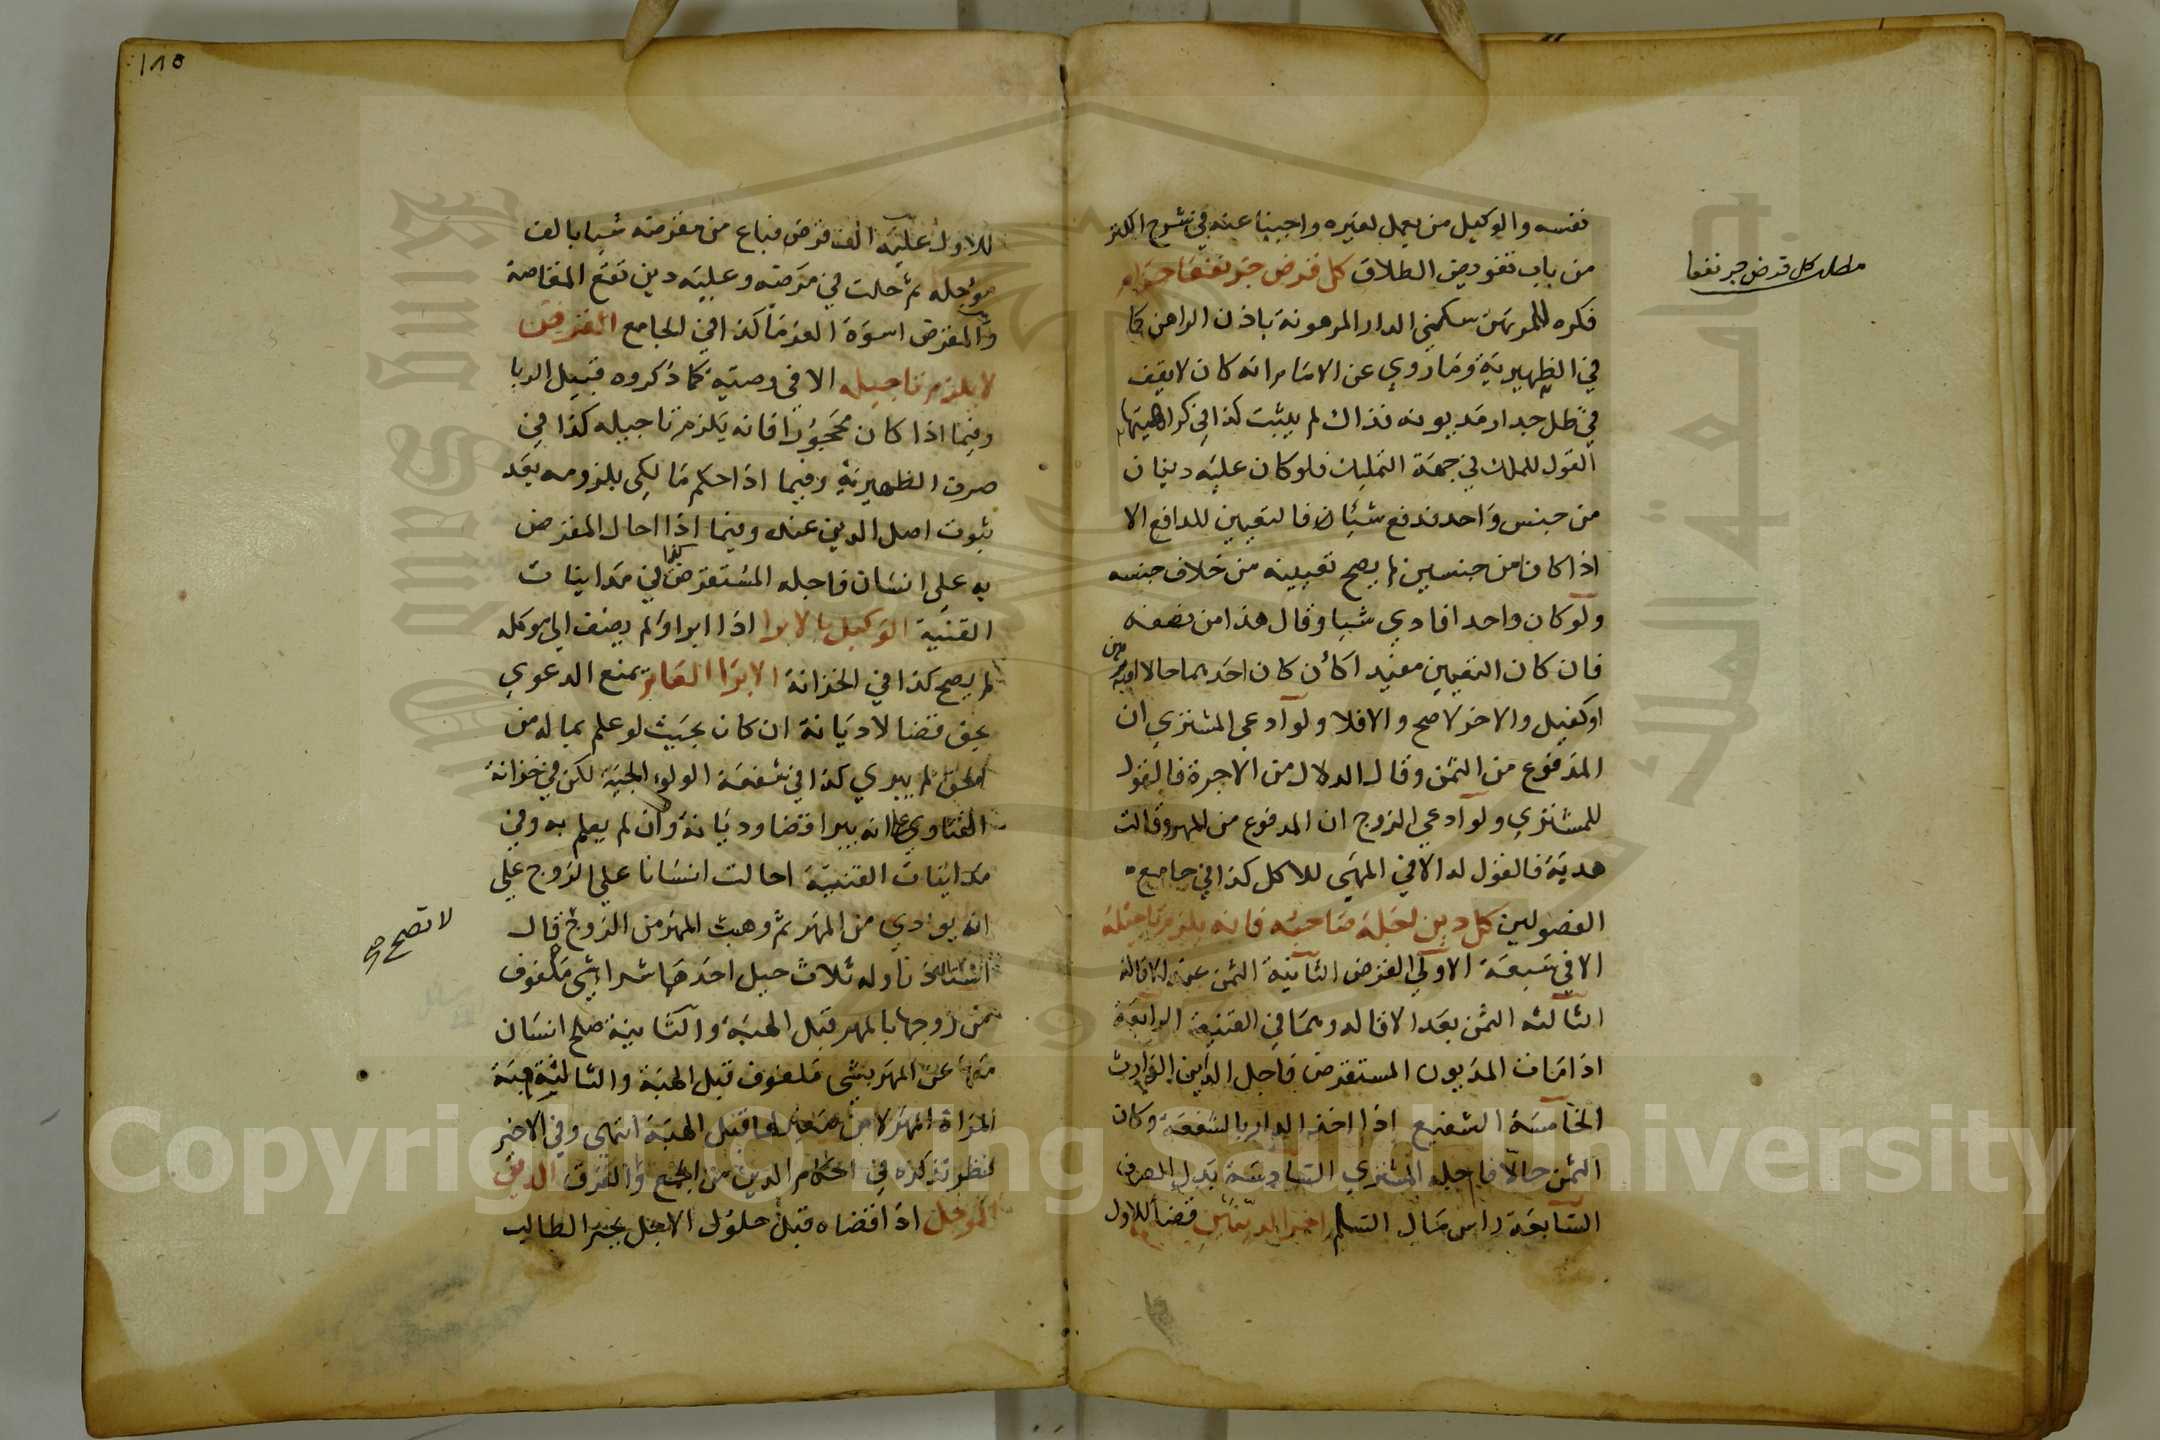 نفسه والوكيل من يعمل لغيره واجبنا عنه في شرح الكنز
من باب تفويض الطلاق كل قرض جر نفعا حرام
فكره للمرتهن سكني الدار المرهونة باذن الراهن كما
في الظهيرية وما روي عن الامام انه كان لا يقف
في ظل جدار مديونه فذاك لم يثبت كذا في كراهيتها
القول للملك في جهة التمليك فلو كان عليه دينان
من جنس واحد فدفع شيئا فالتعيين للدافع الا
اذا كان من جنسين لم يصح تعيينه من خلاف جنسه
ولو كان واحدا فادي شيا وقال هذا من نصفه
فان كان التعيين مفيدا كأن كان احدهما حالا او به رهن
او كفيل والاخر لا صح والا فلا ولو ادعي المشتري ان
المدفوع من الثمن وقال الدلال من الاجرة فالقول
للمشتري ولو ادعي الزوج ان المدفوع من المهر وقالت
هدية فالقول له الا في المهيي للاكل كذا في جامع
الفصولين كل دين اجله صاحبه فانه يلزم تاجيله
الا في سبعة الاولي القرض الثانية الثمن عند الاقالة
الثالثه الثمن بعد الاقاله وهما في القنية الرابعة
اذا مات المديون المستقرض فاجل الداين الوارث
الخامسة الشفيع اذا اخذ الدار بالشفعة وكان
الثمن حالا فاجله المشتري السادسة بدل الصرف
السابعة راس مال السلم اخر الدينين قضا للاول
مطلب كل قرض جر نفعا
١٨٥
للاول عليه الف قرض فباع من مقرضه شيا بالف
موجله ثم حلت في مرضه وعليه دين تقع المقاصة
والمقرض اسوة الغرما كذا في الجامع القرض
لا يلزم تاجيله الا في وصية كما ذكروه قبيل الربا
وفيما اذا كان مجحودا فانه يلزم تاجيله كذا في
صرف الظهيرية وفيما اذا حكم مالكي بلزومه بعد
ثبوت اصل الدين عنده وفيما اذا احال المقرض
به علي انسان فاجله المستقرض كذا في مداينات
القنية الوكيل بالابرا اذا ابرا ولم يضف الي موكله
لم يصح كذا في الخزانة الابرا العام يمنع الدعوي
بحق قضا لا ديانة ان كان بحيث لو علم بما له من
الحق لم يبري كذا في شفعة الولوالجية لكن في خزانة
الفتاوي انه يبرا قضا وديانة وان لم يعلم به وفي
مداينات القنية احالت انسانا علي الزوج علي
انه يودي من المهر ثم وهبت المهر من الزوج قال
استاذنا وله ثلاث حيل احدها شرا شي ملفوف
من زوجها بالمهر قبل الهبة والثانية صلح انسان
معها عن المهر بشي ملفوف قبل الهبة والثالثة هبة
المراة المهر لابن صغير لها قبل الهبة انتهي وفي الاخير
نظر نذكره في احكام الدين من الجمع والفرق الدين
الموجل اذا قضاه قبل حلول الاجل يجبر الطالب
لا تصح صح